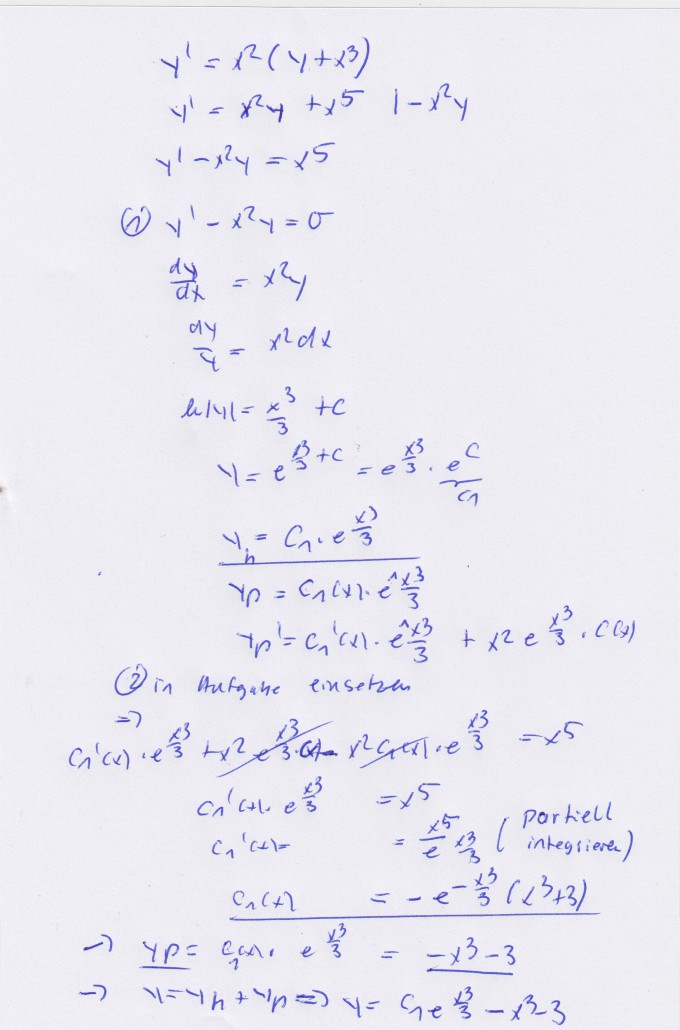 y' = x²(y+x³)
y' = x²y + x⁵ | - x²y
y' - x²y = x⁵
① y' - x²y = 0
dy/dx = x²y
dy/y = x² dx
ln|y| = x³/3 + C
y = e^(x³/3 + C) = e^(x³/3) · e^C
C₁
y_h = C₁ · e^(x³/3)
yp = C₁(x) · e^(x³/3)
yp' = C₁'(x) · e^(x³/3) + x² e^(x³/3) · C(x)
② in Aufgabe einsetzen
=>
C₁'(x) · e^(x³/3) + x² e^(x³/3) · C(x) - x² C₁(x) · e^(x³/3) = x⁵
C₁'(x) · e^(x³/3) = x⁵
C₁'(x) = = x⁵/e^(x³/3) (partiell
integrieren)
C₁(x) = - e^(-x³/3) (x³+3)
-> yp = C₁(x) · e^(x³/3) = -x³-3
-> y = yh + yp => y = C₁e^(x³/3) - x³-3